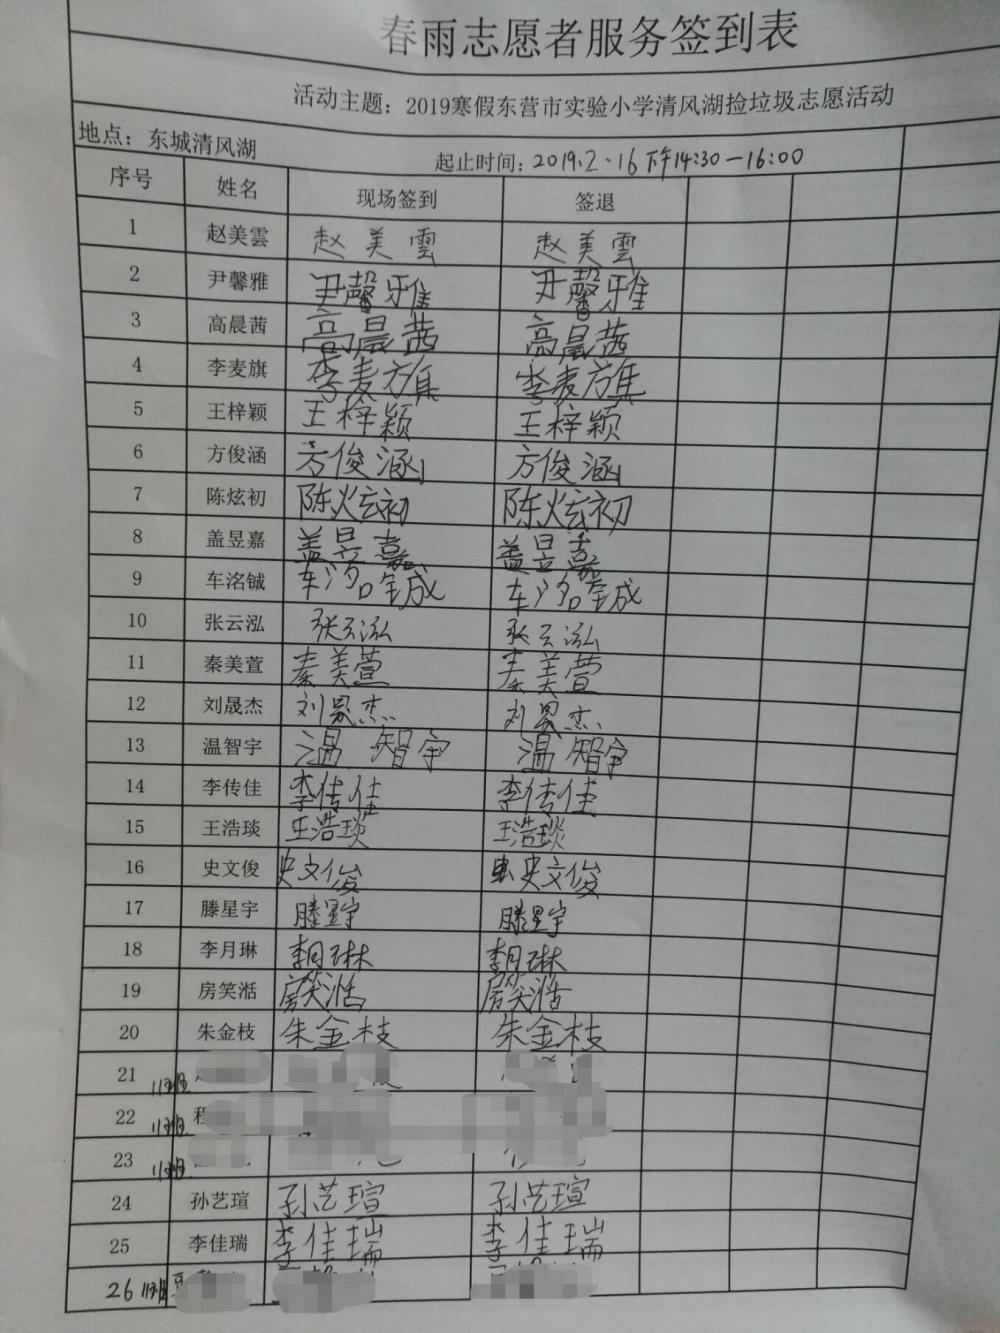 春雨志愿者服务签到表
活动主题：2019寒假东营市实验小学清风湖捡垃圾志愿活动
地点：东城清风湖 起止时间：2019.2.16下午14:30—16:00
序号 姓名 现场签到 签退
1 赵美雲 赵美雲 赵美雲
2 尹馨雅 尹馨雅 尹馨雅
3 高晨茜 高晨茜 高晨茜
4 李麦旗 李麦旗 李麦旗
5 王梓颖 王梓颖 王梓颖
6 方俊涵 方俊涵 方俊涵
7 陈炫初 陈炫初 陈炫初
8 盖昱嘉 盖昱嘉 盖昱嘉
9 车洺铖 车洺铖 车洺铖
10 张云泓 张云泓 张云泓
11 秦美萱 秦美萱 秦美萱
12 刘晟杰 刘晟杰 刘晟杰
13 温智宇 温智宇 温智宇
14 李传佳 李传佳 李传佳
15 王浩琰 王浩琰 王浩琰
16 史文俊 史文俊 史文俊
17 滕星宇 滕星宇 滕星宇
18 李月琳 李月琳 李月琳
19 房笑湉 房笑湉 房笑湉
20 朱金枝 朱金枝 朱金枝
21 11班
22 11班 程
23 11班
24 孙艺瑄 孙艺瑄 孙艺瑄
25 李佳瑞 李佳瑞 李佳瑞
26 11班